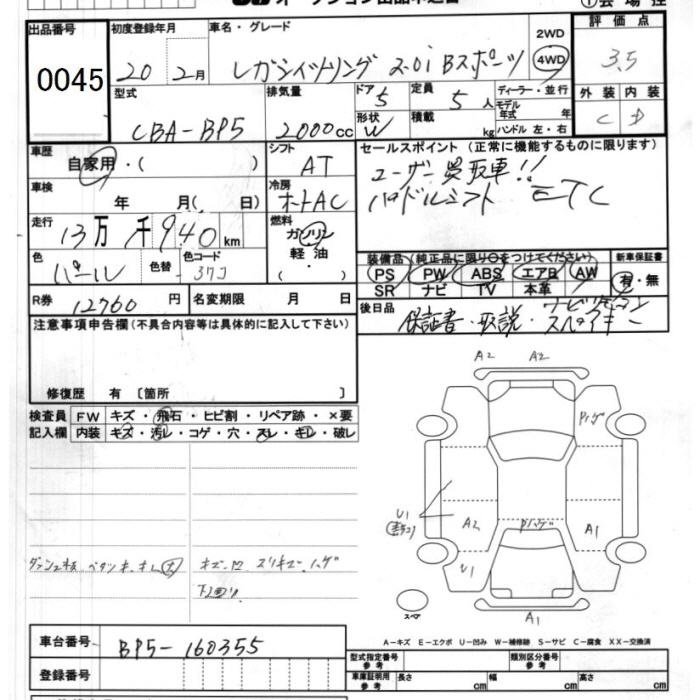 オークション出品申込書
出品番号 0045
初度登録年月 20年 2月
車名・グレード レガシィツーリング 2.0i Bスポーツ
2WD
4WD
評価点 3.5
型式 CBA-BP5
排気量 2000cc
ドア 5
形状 W
定員 5人
積載 kg
ディーラー・並行
モデル年式 年
ハンドル 左・右
外装 C
内装 D
車歴 自家用・( )
シフト AT
車検 年 月( 日)
冷房 オートAC
走行 13万 千940km
燃料 ガソリン
軽油
・( )
色 パール
色替
色コード 37J
R券 12760円
名変期限 月 日
セールスポイント (正常に機能するものに限ります)
ユーザー買取車!!
パドルシフト ETC
装備品 (純正品に限り○をつけてください)
PS PW ABS エアB AW
SR ナビ TV 本革
新車保証書
有・無
後日品 保証書・取説・
スペアキー
注意事項申告欄(不具合内容等は具体的に記入して下さい)
修復歴 有 〔箇所 〕
検査員記入欄 FW キズ・飛石・ヒビ割・リペア跡・×要
内装 キズ・汚レ・コゲ・穴・スレ・キレ・破レ
A2 A2
Pハゲ
U1
A2
Pハゲ
A1
U1
A1
スペア
キズ・凹 スリキズ・ハゲ
下回り
A−キズ E−エクボ U−凹み W−補修跡 S−サビ C−腐食 XX−交換済
車台番号 BP5-160355
登録番号
型式指定番号 参考
類別区分番号 参考
車庫証明用 参考 長さ cm 幅 cm 高さ cm